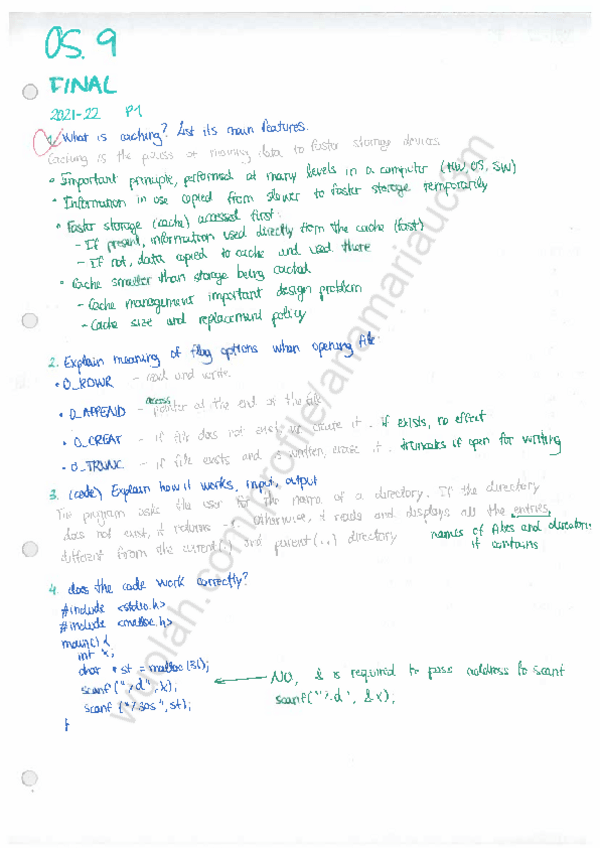 OS. 9
FINAL
2021-22 P1
1. What is caching? List its main features.
Caching is the process of moving data to faster storage devices.
• Important principle, performed at many levels in a computer (HW, OS, SW)
• Information in use copied from slower to faster storage temporarily
• Faster storage (cache) accessed first:
- If present, information used directly from the cache (fast)
- If not, data copied to cache and used there
• Cache smaller than storage being cached
- Cache management important design problem
- Cache size and replacement policy
2. Explain meaning of flag options when opening file:
• O_RDWR - read and write.
access
• O_APPEND - pointer at the end of the file
• O_CREAT - if file does not exist, create it. if exists, no effect
• O_TRUNC - if file exists and is written, erase it. truncates if open for writing
3. (code) Explain how it works, input, output
The program asks the user for the name of a directory. If the directory
does not exist, it returns otherwise, it reads and displays all the entries,
different from the current(.) and parent(..) directory names of files and directories
it contains
4. does the code work correctly?
#include <stdio.h>
#include <malloc.h>
main() {
int x;
char * st = malloc(31);
scanf("%d", x); ← NO, & is required to pass address to scanf
scanf("%30s", st); scanf("%d", &x);
}
wuolah.com/profile/anamariauc